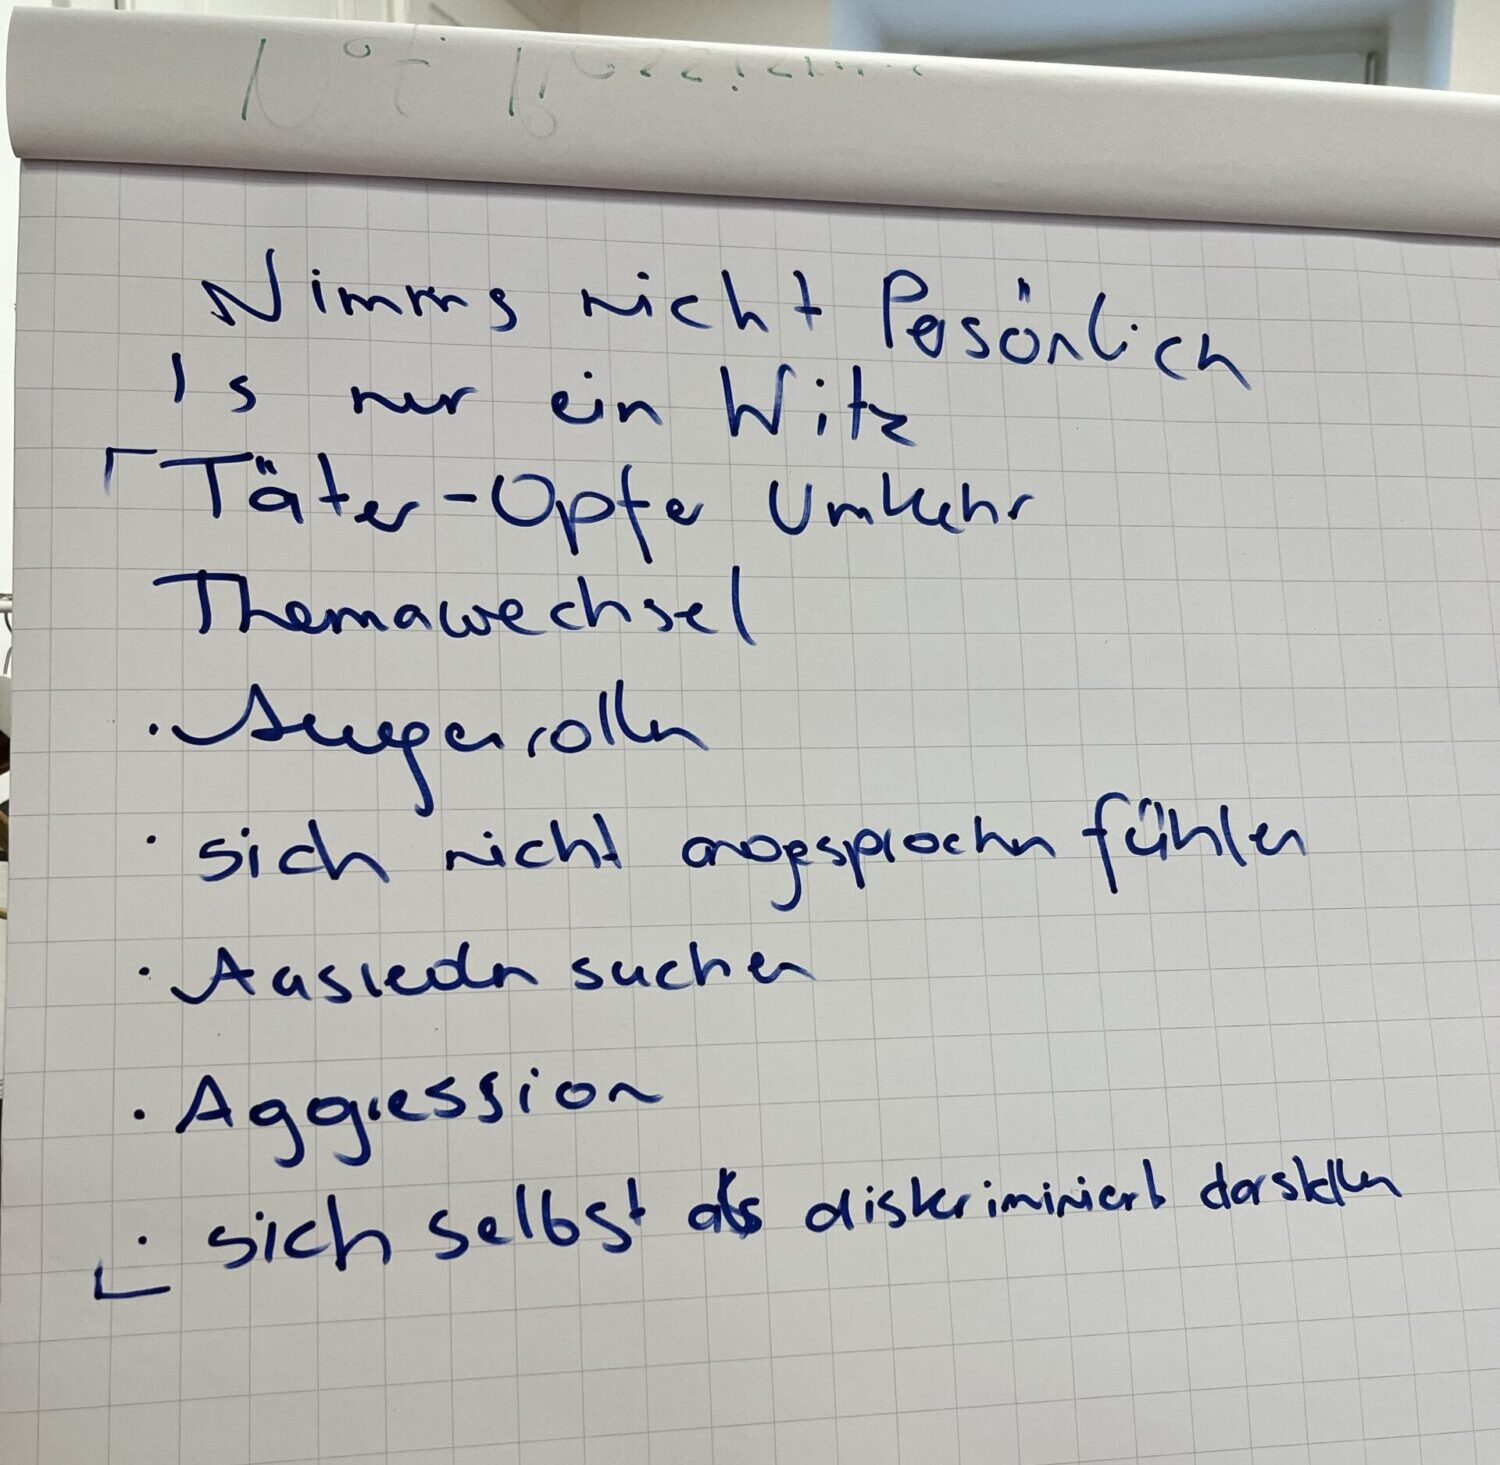 Nimms nicht Persönlich
Is nur ein Witz
Täter-Opfer Umkehr
Themawechsel
· Augenrolln
· sich nicht angesprochn fühlen
· Ausredn suchen
· Aggression
· sich selbst als diskriminiert darstellen